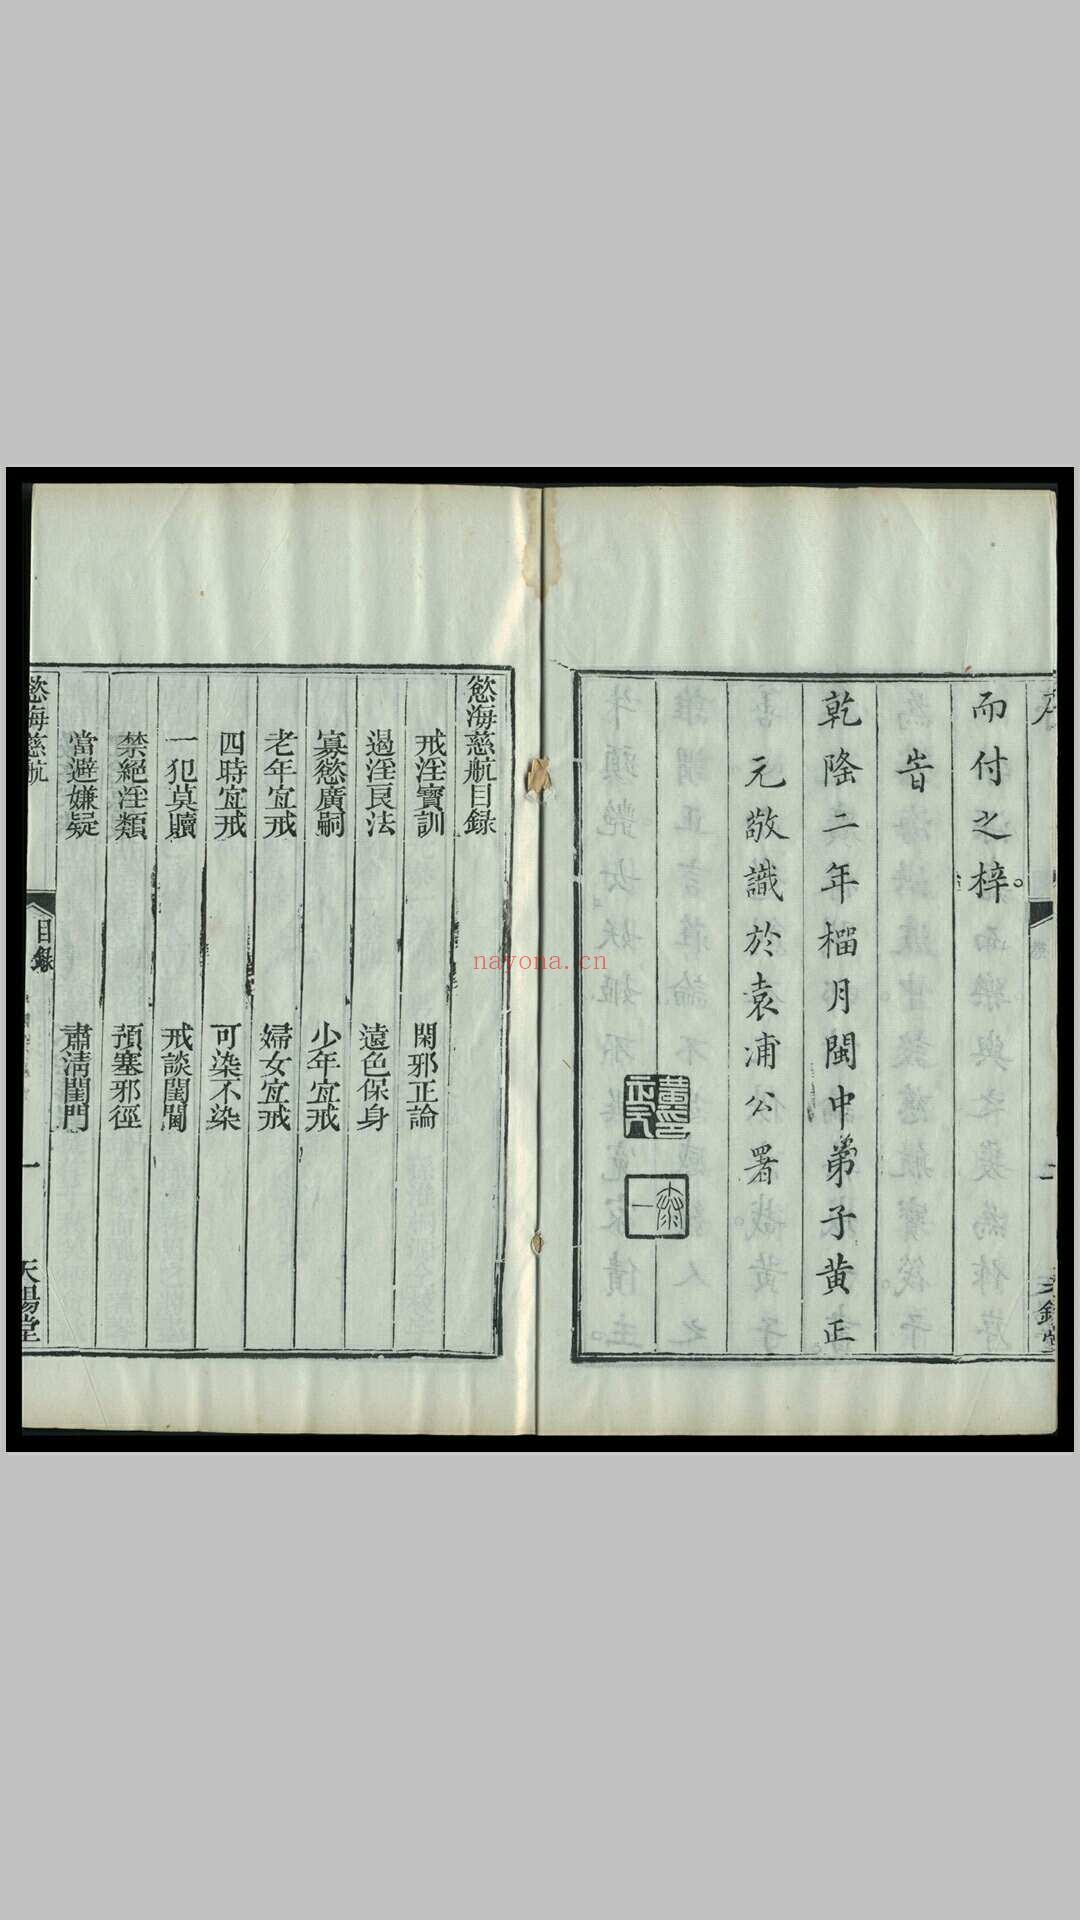 而付之梓。
旹
乾隆二年榴月閩中弟子黃正
元敬識於袁浦公署
慾海慈航目録
戒淫寶訓
閑邪正論
遏淫良法
遠色保身
寡慾廣嗣
少年宜戒
老年宜戒
婦女宜戒
四時宜戒
可染不染
一犯莫贖
戒談閨閫
禁絕淫類
預塞邪徑
當避嫌疑
肅淸閨門
慾海慈航
目錄
一
天陽堂
nayona.cn